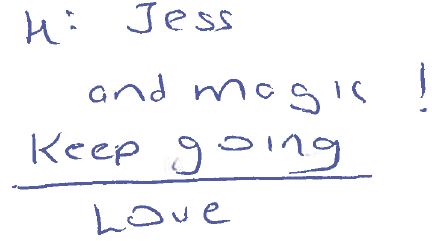 Hi Jess
and magic !
Keep going
Love